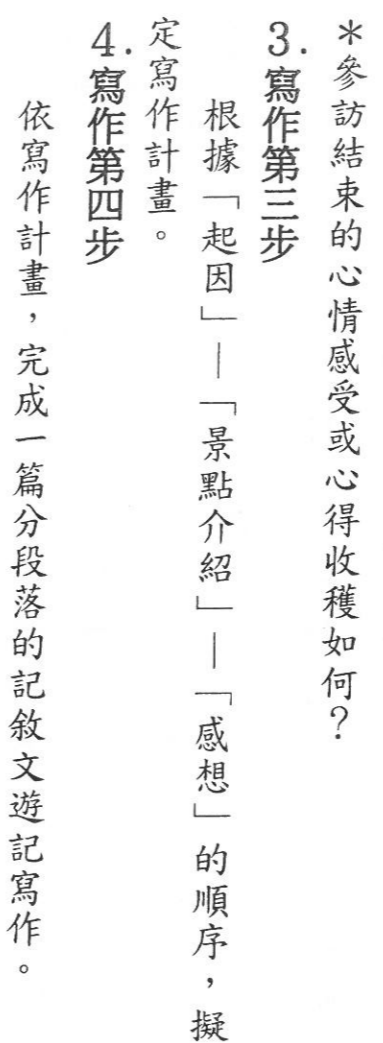 ＊參訪結束的心情感受或心得收穫如何？
3.寫作第三步
根據「起因」—「景點介紹」—「感想」的順序，擬
定寫作計畫。
4.寫作第四步
依寫作計畫，完成一篇分段落的記敘文遊記寫作。